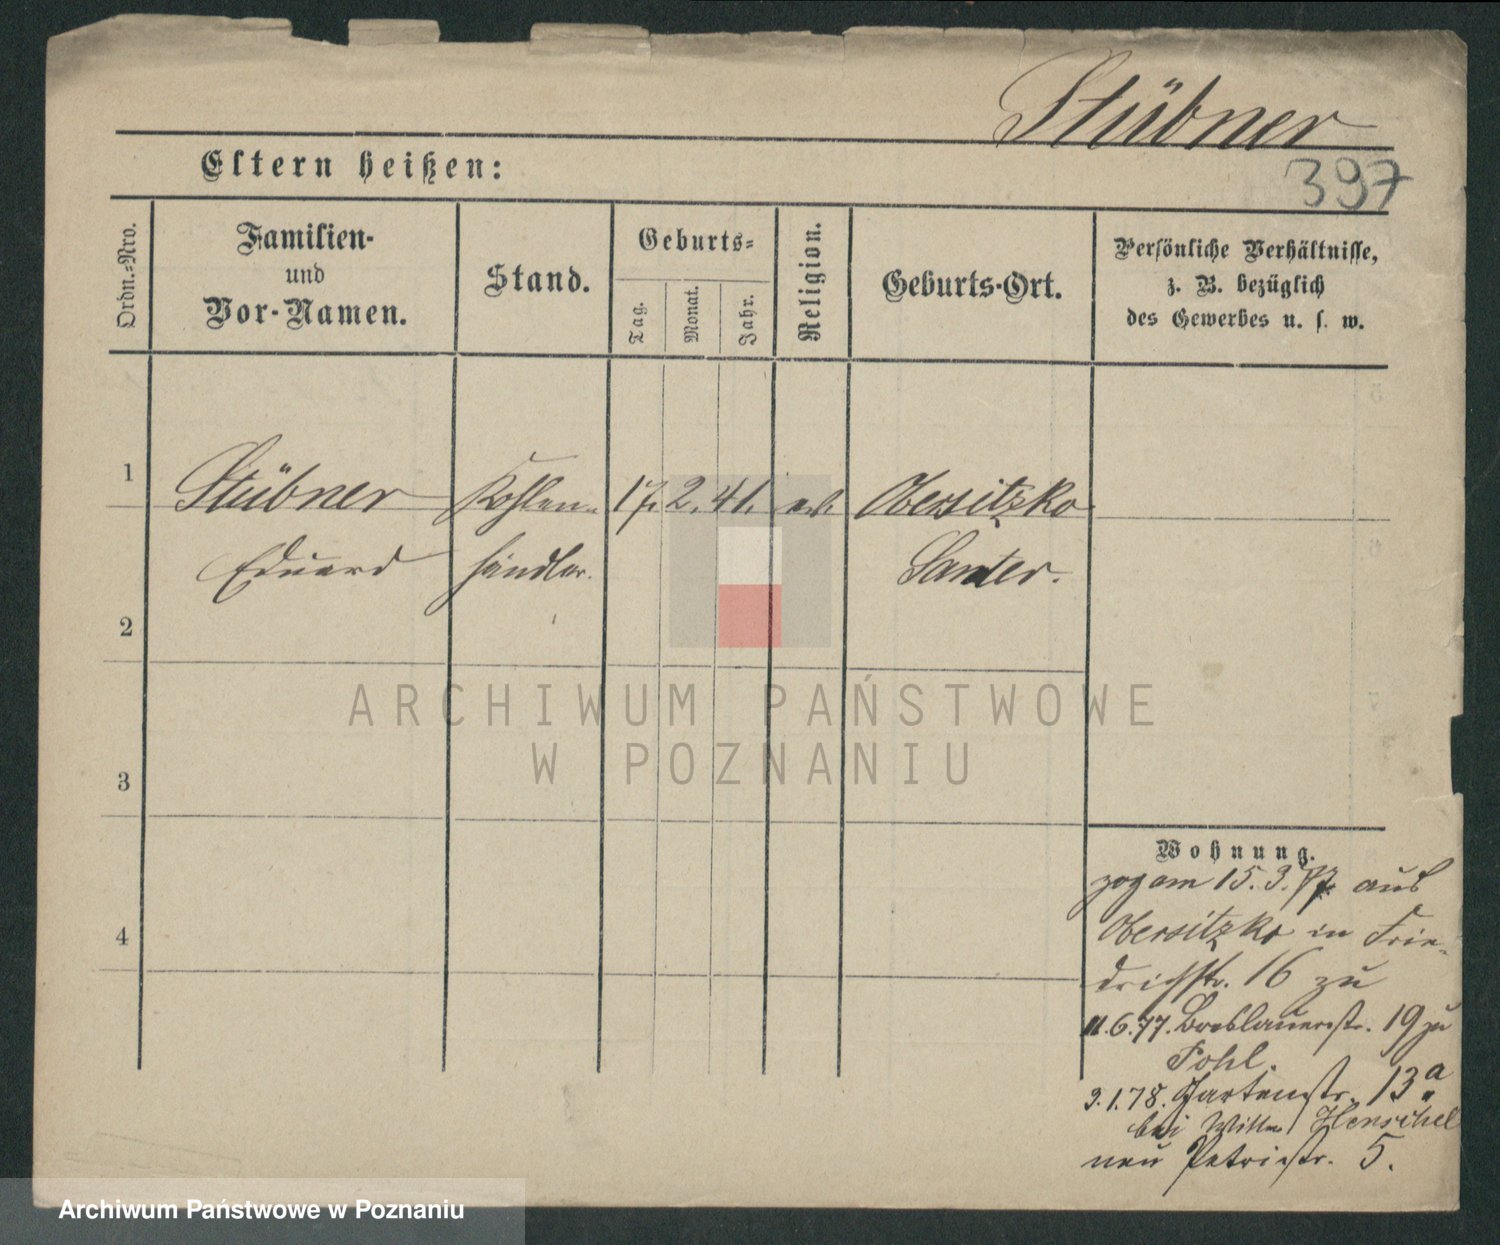 Stübner
Eltern heißen:
397
Ordn.-Nro.
Familien-
und
Vor-Namen.
Stand.
Geburts-
Tag.
Monat.
Jahr.
Religion.
Geburts-Ort.
Persönliche Verhältnisse,
z. B. bezüglich
des Gewerbes u. s. w.
1
Stübner Kohlen- 17. 2. 41. ev. Obersitzko
Eduard händler. Samter.
2
3
4
ARCHIWUM PAŃSTWOWE
W POZNANIU
Wohnung.
zog am 15.3.77 aus
Obersitzko in Frie-
drichstr. 16 zu
11.6.77. Breslauerstr. 19 zu
Pohl.
3.1.78. Gartenstr. 13a
bei Henschel
neu Petristr. 5.
Archiwum Państwowe w Poznaniu